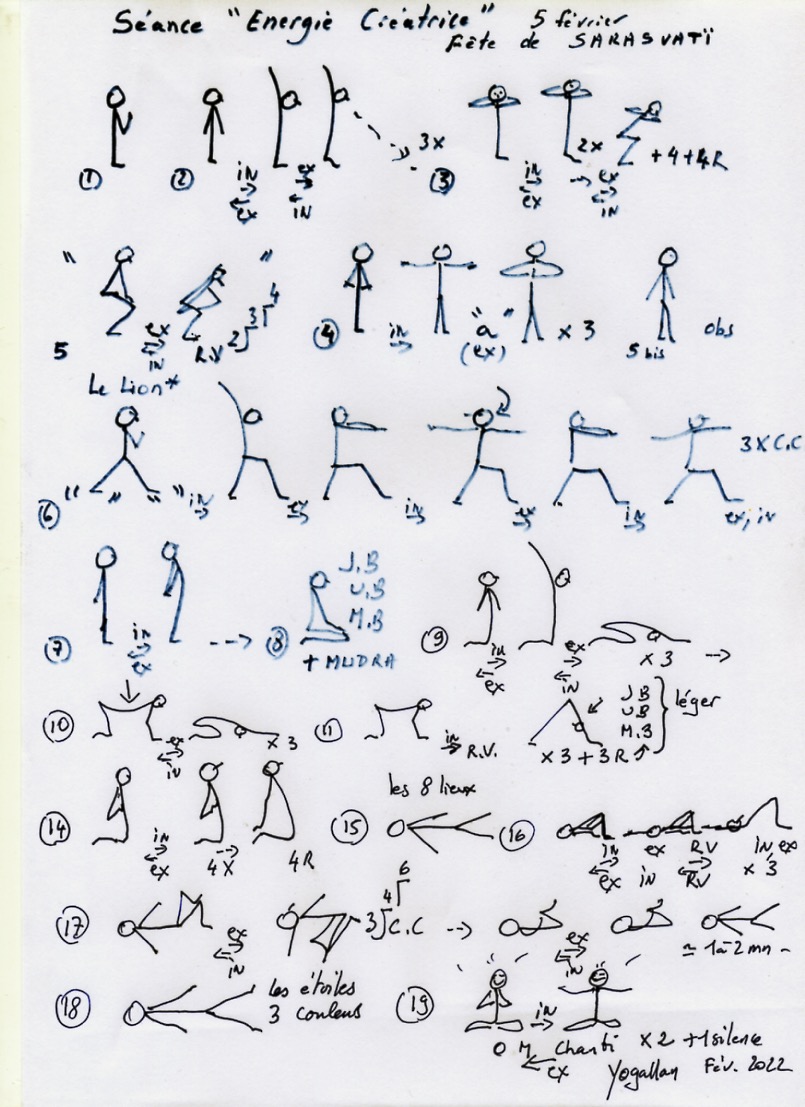 Séance "Energie Créatrice" 5 février
Fête de SARASVATÏ
① ② in ex ex in 3x ③ in ex 2x ex in +4+4R
" " 5 ex in R.V 2 3 4 ④ in "a" (ex) x 3 5 bis obs
Le Lion*
⑥ " " " in ex in ex in ex, in 3 X C.C
⑦ in ex ⑧ J.B
U.B
M.B
+ MUDRA
⑨ in ex ex in x 3
⑩ ex in x 3 11 in R.V. x 3 + 3 R J B
U B
M.B
léger
⑭ in ex 4X 4R ⑮ les 8 lieux ⑯ in ex ex in RV RV IN, ex x 3
⑰ ex in 3 4 6 C.C ex in ≃ 1à2mn -
⑱ les étoiles
3 couleurs
⑲ in
O M Chanti x2 +1 silence
ex Yogallan Fév. 2022